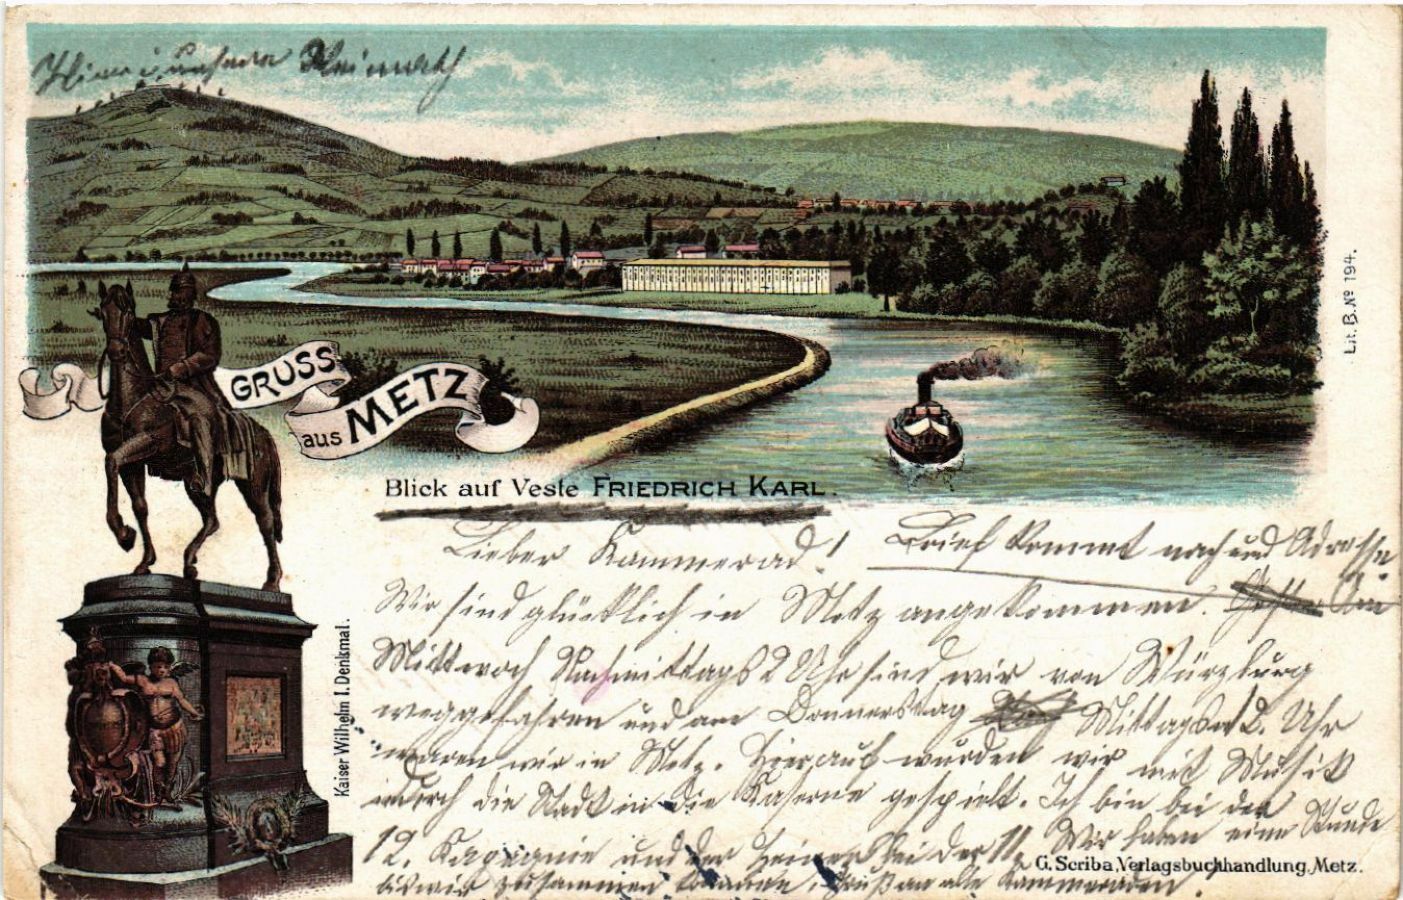 Heimath
GRUSS
aus METZ
Blick auf Veste FRIEDRICH KARL.
Lit. B. Nº 194.
Kaiser Wilhelm I. Denkmal.
Lieber Kammerad! Brief kommt nach und Adresse.
Wir sind glücklich in Metz angekommen. Am
Mittwoch Nachmittags 2 Uhr sind wir von Würzburg
weggefahren und am Donnerstag Mittags 2. Uhr
waren wir in Metz. Hierauf wurden wir mit Musik
durch die Stadt in die Kaserne gespielt. Ich bin bei der
12. und der bei der 11. Wir haben eine Stunde
bis wir zusammen Gruß an alle Kammeraden.
G. Scriba, Verlagsbuchhandlung, Metz.